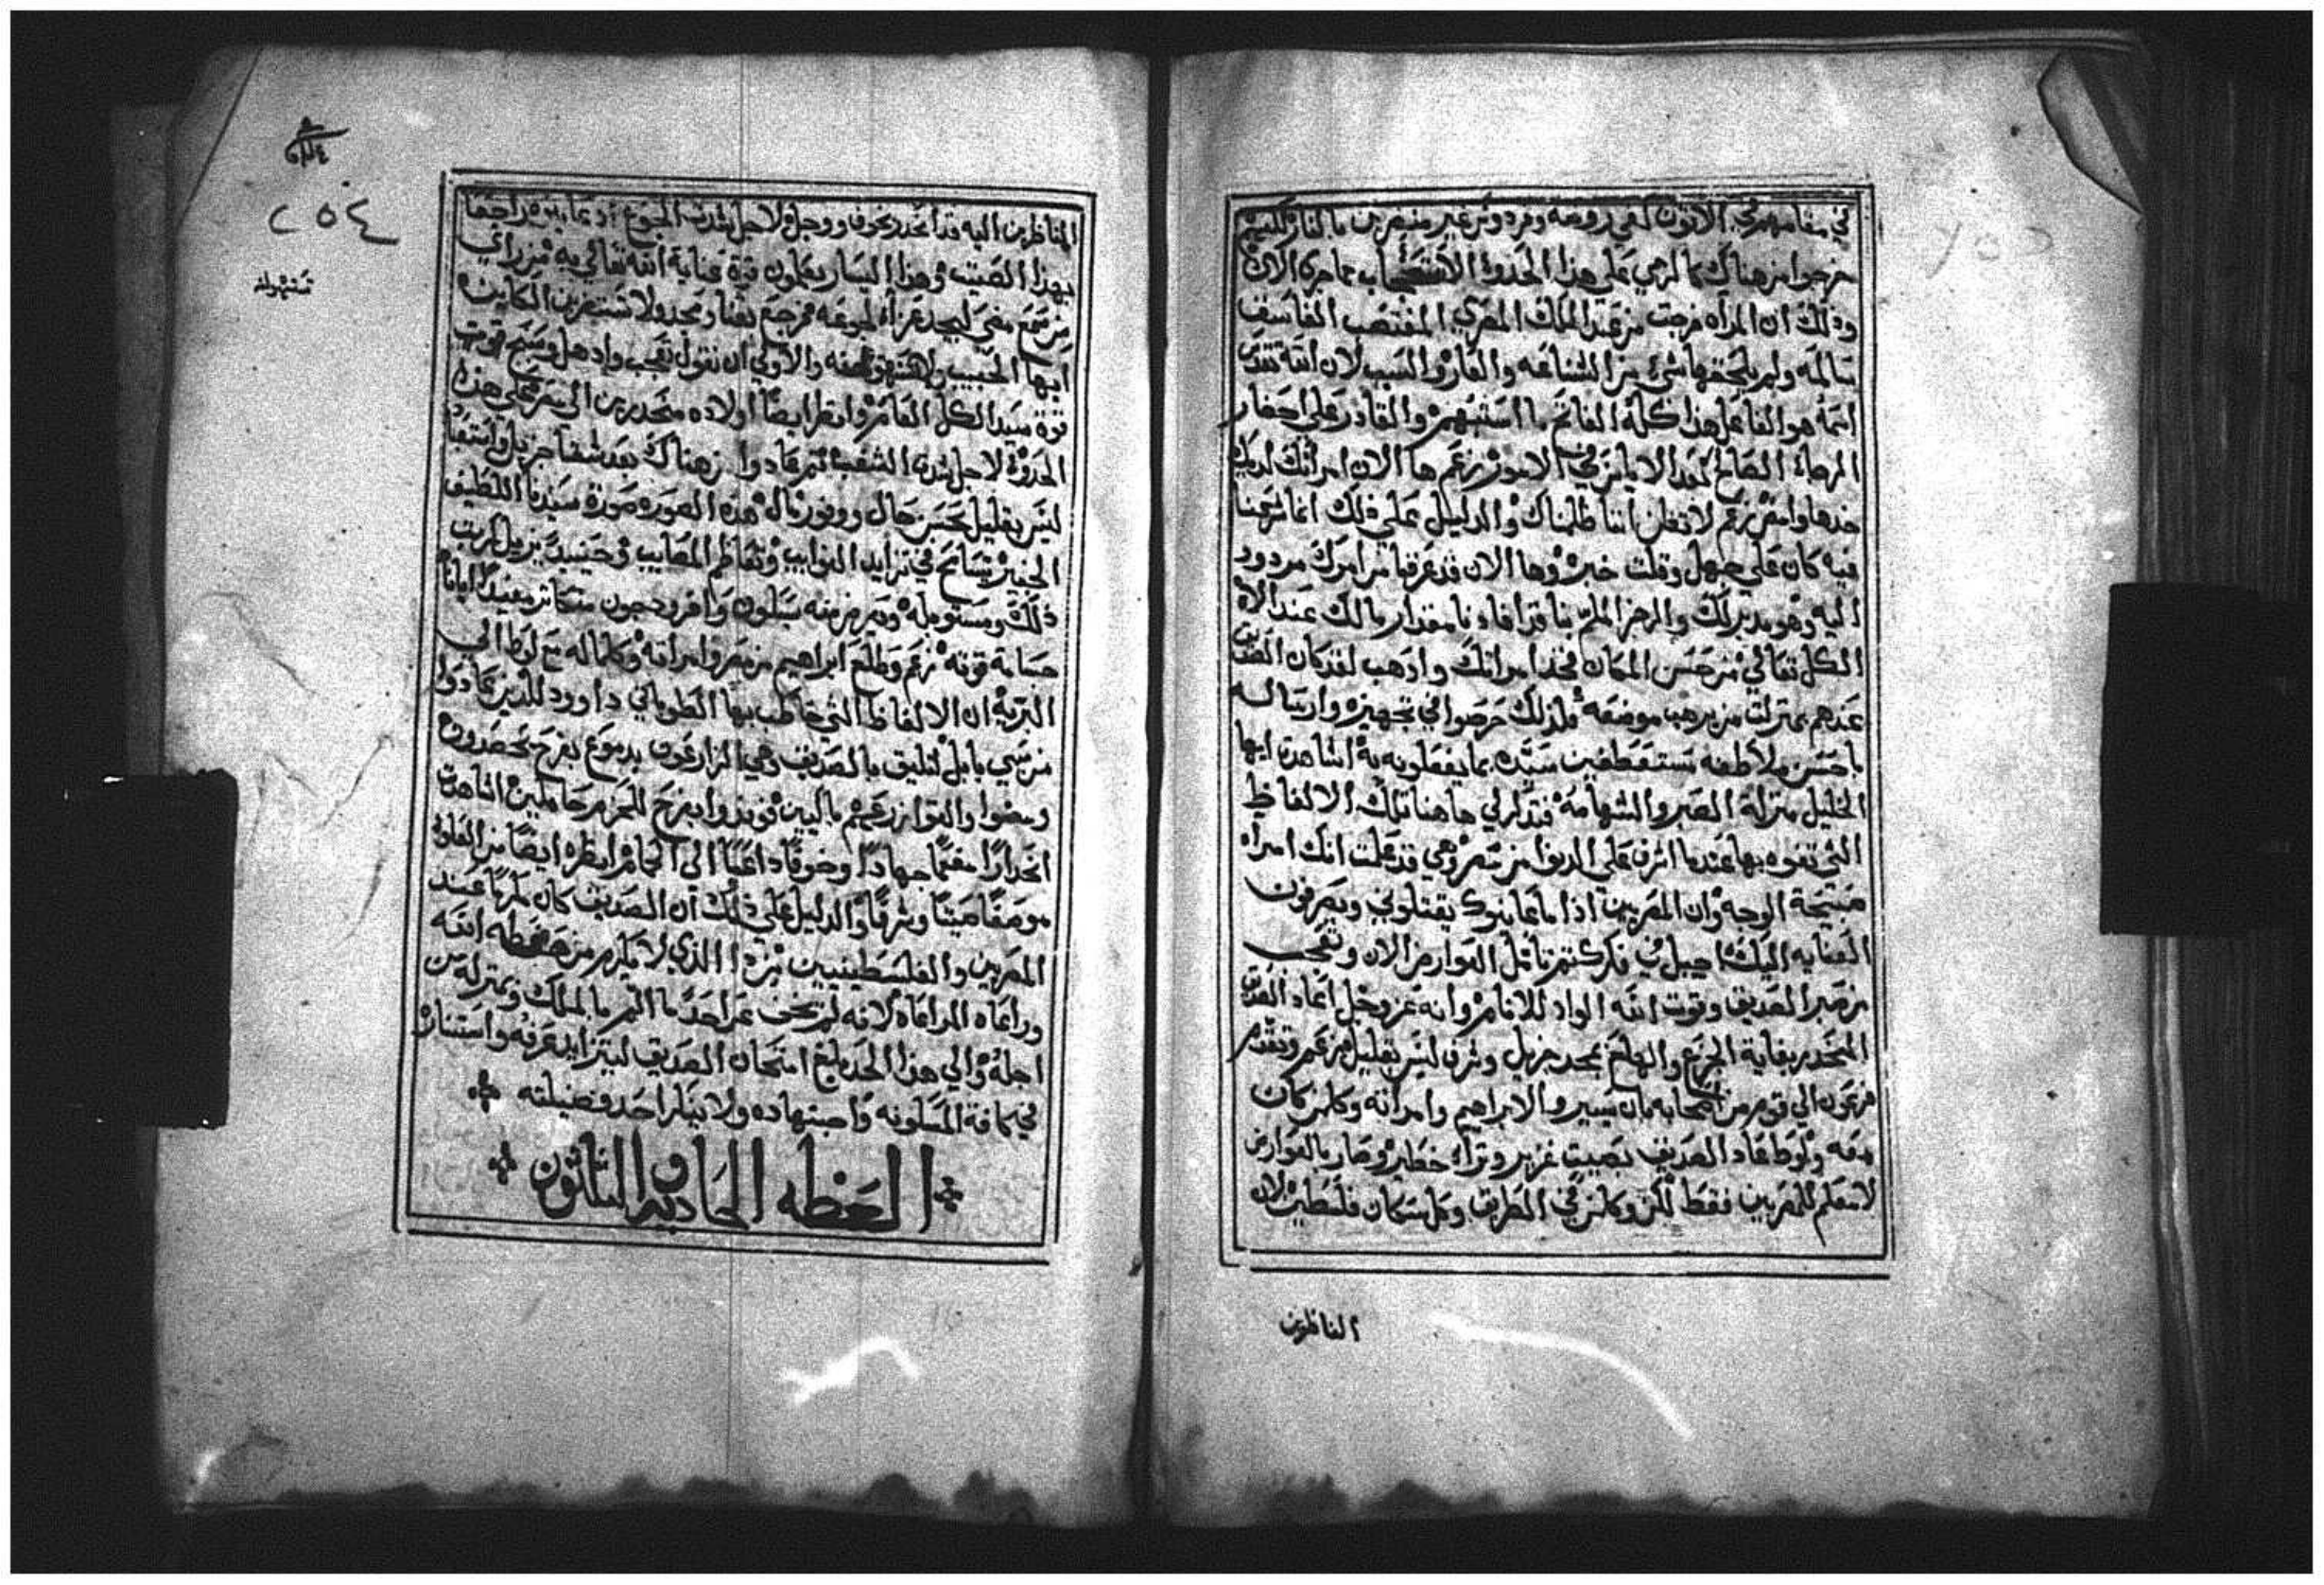 في مقامهم في الاتون كفي روضه وفردوس غير منضرين بالنار لكنهم
خرجوا من هناك كما لزمي علي هذا الحدود الاستعجاب بما جري الان
وذلك ان المراه خرجت من عند الملك المصري المغتصب الفاسق
سالمه ولم يلحقها شي من الشناعه والعار والسبب لان الله تقدس
اسمه هو الفاعل هذا كله الفاتح ما استبهم والقادر علي احضار
الرجاء الصالح عند الاياس في الامور زعم ها الان امراتك لديك
خذها وامض زعم لا تظن اننا ظلمناك والدليل علي ذلك انما شرعنا
فيه كان علي جهل وقلت خبره وها الان قد عرفنا من امرك مردود
اليه وهو مدبرلك والرجز الملم بنا قد افادنا مقدار مالك عند الاه
الكل تعالي من حسن المكان فخذ امراتك واذهب لقد كان الصديق
عندهم بمنزلت من يرهب موضعه فلذلك حرصوا في تجهيزه وارساله
باحسن ملاطفه مستعطفين سيده بما يفعلونه به اشاهدت ايها
الخليل منزلة الصبر والشهامه فتذكر لي هاهنا تلك الالفاظ
التي تفوه بها عندما اشرف علي الدنوا من مصر وهي قد علمت انك امراه
صبيحة الوجه وان المصريين اذا ما عاينوك يقتلوني ويصرفون
العنايه اليك اجيبل في فكرك ثم تامل العوارض الان وتعجب
من صبر الصديق وقوت الله الواد للانام وانه عز وجل اعاد الصديق
المنحدر بغاية الجزع والهلع بمجد جزيل وشرف ليس بقليل زعم وتقدم
فرعون الي قوم من اصحابه بان يسيروا لابراهيم وامراته وكلمن كان
معه ولوط فعاد الصديق بصيت غزير وتراه خطير وصار بالعوارض
لا معلم للمصريين فقط لكن وكلمن في الطريق وكل سكان فلسطين لان
الناظرين
٢٥٤
الناظرين اليه قد انحدر بخوف ووجل لاجل شدت الجوع اذ عاينوه راجعا
بهذا الصيت وهذا اليسار يعلمون قوة عناية الله تعالي به من راي
من سمع مضي ليجد عزاء لجوعه فرجع بغنا ومجد ولا تستغربن الكاينه
ايها الحبيب والاولي ان نقول تعجب وادهل وسبح قوت
قوة سيد الكل العامر وانظر ايضا اولاده منحدرين الي مصر علي هذه
الحدوة لاجل شدة الشغب ثم عادوا من هناك بعد شقا جزيل واستعباد
ليس بقليل بحسن حال ووفور مال هذه الصوره صورة سيدنا اللطيف
الخبير يتسامح في تزايد النوايب وتعاظم المصايب وحينيذ يزيل كرب
ذلك ومستوجبه وصبرهم منه يسلون وافر وجون متكاثر مفيدا ايانا
جسامة قوته زعم وطلع ابراهيم من مصر وامراته وكلماله مع لوط الي
البريه ان الالفاظ التي خاطب بها الطوباني داوود للذين عادوا
من سبي بابل لتليق بالصديق وهي الزارعون بدموع بفرح يحصدون
ومضوا والقوا زرعهم باكيين فوفدوا بفرح للحزم حاملين اشاهدت
انحدارا مفعما جهادا وخوفا داعيا الي الحام انظره ايضا من القلوه
موضعا صيتا وشرفا والدليل علي ذلك ان الصديق كان مكرما عند
المصريين والفلسطينيين من ذا الذي لا يكرم من حفظه الله
وراعاه المراعاه لانه لم يخف عن احد ما الم بالملك وبمنزلة من
اجله والي هذا الحد بلغ امتحان الصديق ليتزايد عرفه واستنار
في كافة المسكونه واجتهاده ولا ينال احد فضيلته
العظه الحاديه والثلاثون